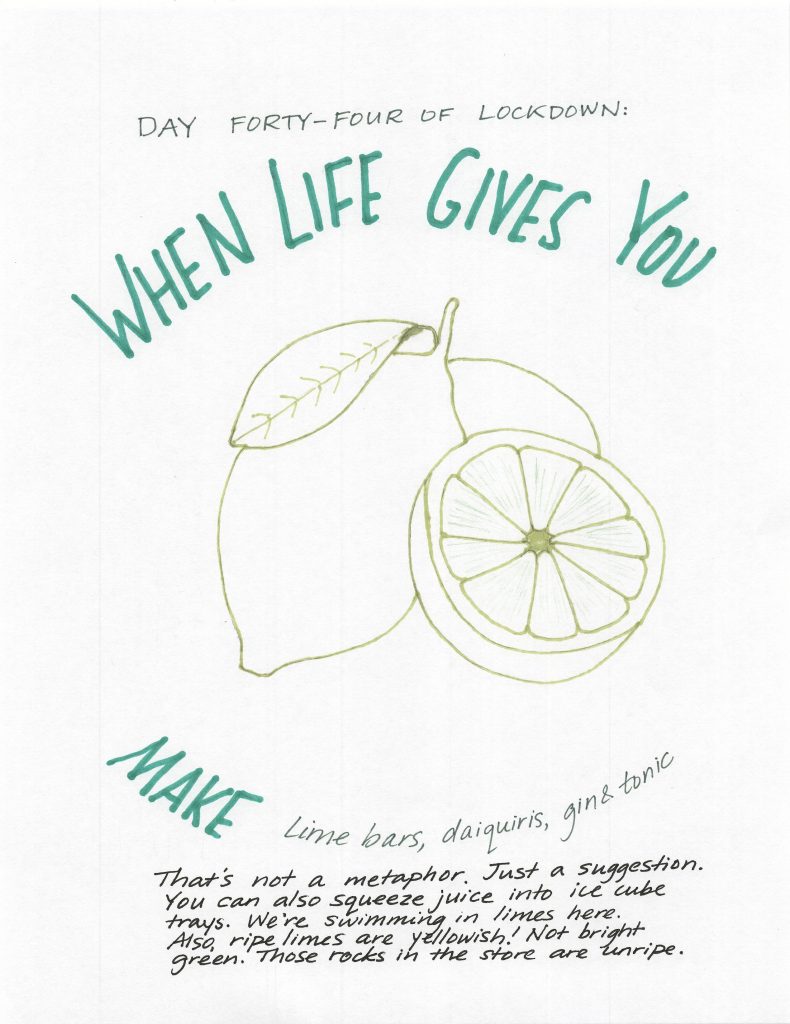 DAY FORTY-FOUR OF LOCKDOWN:
WHEN LIFE GIVES YOU
MAKE Lime bars, daiquiris, gin & tonic
That's not a metaphor. Just a suggestion.
You can also squeeze juice into ice cube
trays. We're swimming in limes here.
Also, ripe limes are yellowish! Not bright
green. Those rocks in the store are unripe.